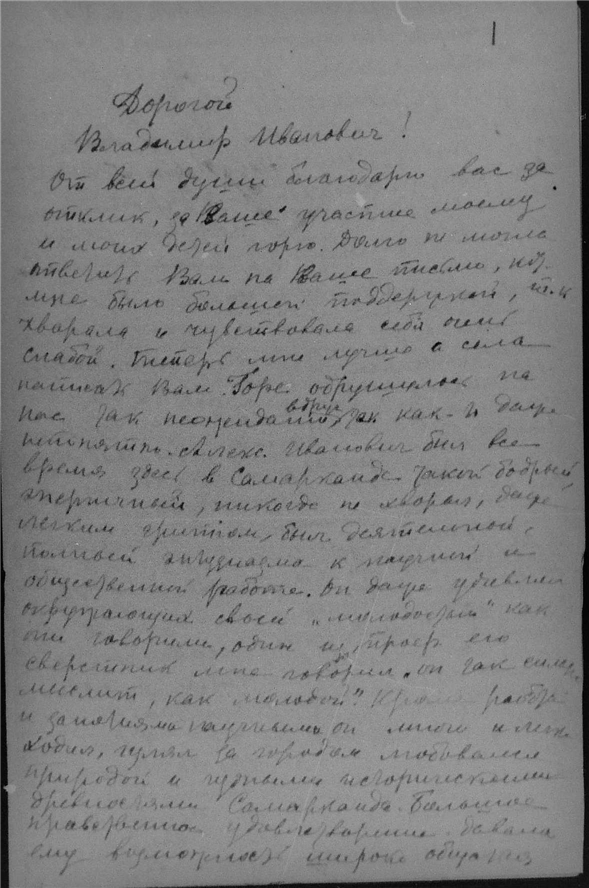 1
Дорогой
Владимир Иванович!
От всей души благодарю вас за
отклик, за Ваше участие моему
и моих детей горю. Долго не могла
ответить Вам на Ваше письмо, кот.
мне было большой поддержкой, т.к.
хворала и чувствовала себя очень
слабой. Теперь мне лучше и села
написать Вам. Горе обрушилось на
нас так неожиданно, вдруг, так как-то даже
непонятно. Алекс. Иванович был все
время здесь в Самарканде такой бодрый,
энергичный, никогда не хворал, даже
легким гриппом, был деятельной,
полной энтузиазма к научной и
общественной работе. Он даже удивлял
окружающих своей „молодостью" как
они говорили, один из проф. его
сверстник мне говорил „он так
мыслит, как молодой". Кроме работы
и занятиями научными он много
ходил, гулял за городом любовался
природой и чудными историческими
древностями Самарканда. Большое
нравственное удовлетворение давала
ему возможность широко общаться